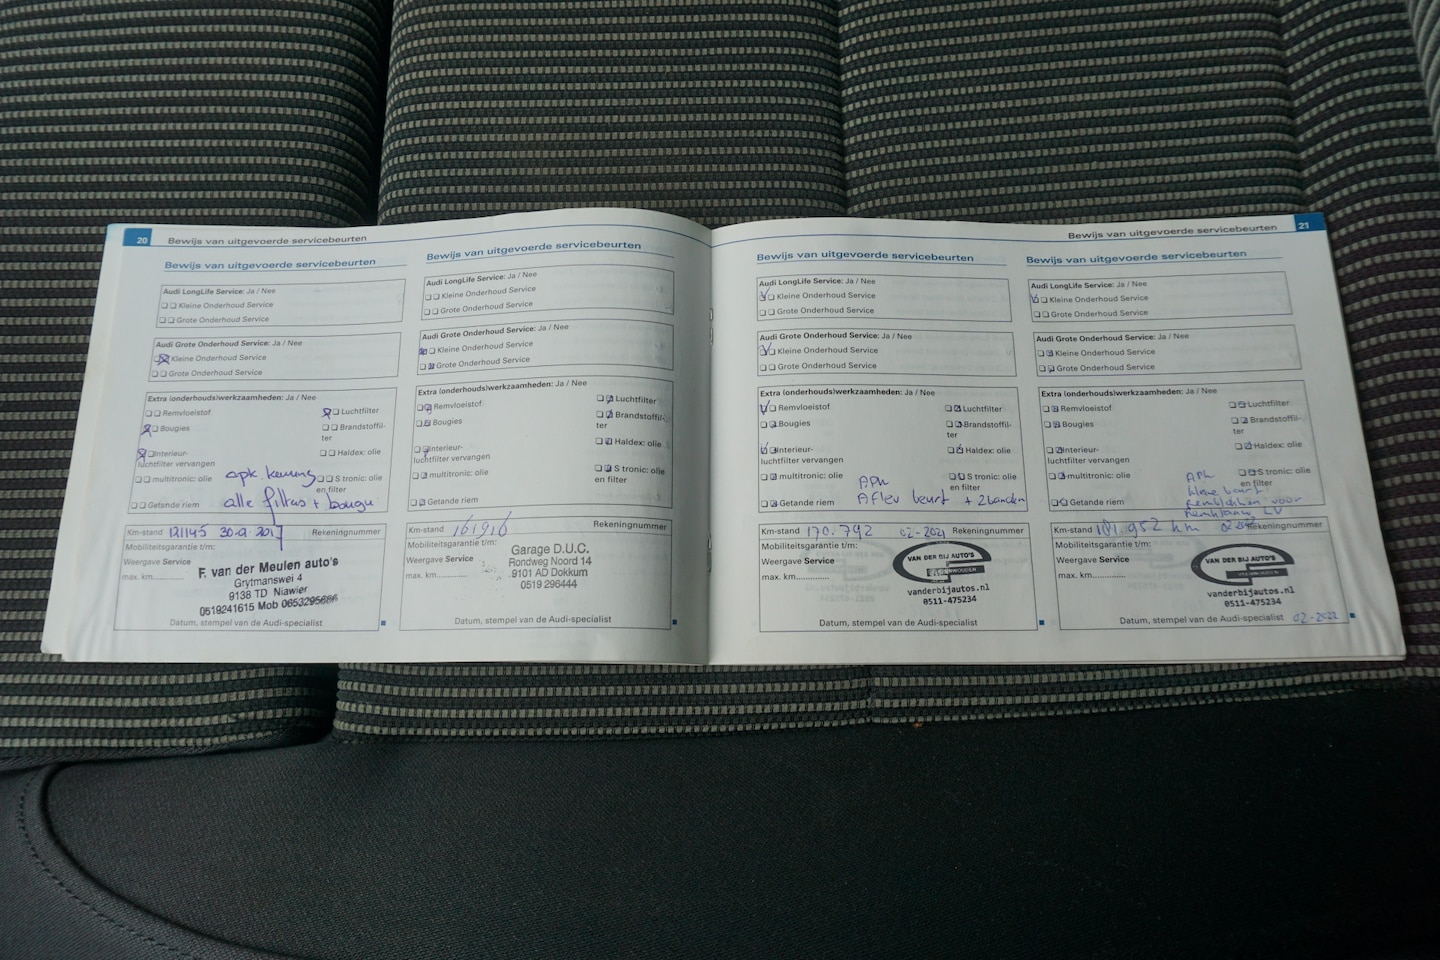 20 Bewijs van uitgevoerde servicebeurten
Bewijs van uitgevoerde servicebeurten
Audi LongLife Service: Ja / Nee
Kleine Onderhoud Service
Grote Onderhoud Service
Audi Grote Onderhoud Service: Ja / Nee
Kleine Onderhoud Service
Grote Onderhoud Service
Extra (onderhouds)werkzaamheden: Ja / Nee
Remvloeistof Luchtfilter
Bougies Brandstoffil-
ter
Interieur- Haldex: olie
luchtfilter vervangen
multitronic: olie S tronic: olie
en filter
Getande riem
apk keuring
alle filters + bougu
Km-stand 121145 30-2-2017 Rekeningnummer
Mobiliteitsgarantie t/m:
Weergave Service
max. km
F. van der Meulen auto's
Grytmanswei 4
9138 TD Niawier
0519241615 Mob 0653295666
Datum, stempel van de Audi-specialist
Bewijs van uitgevoerde servicebeurten
Audi LongLife Service: Ja / Nee
Kleine Onderhoud Service
Grote Onderhoud Service
Audi Grote Onderhoud Service: Ja / Nee
Kleine Onderhoud Service
Grote Onderhoud Service
Extra (onderhouds)werkzaamheden: Ja / Nee
Remvloeistof Luchtfilter
Bougies Brandstoffil-
ter
Interieur- Haldex: olie
luchtfilter vervangen
multitronic: olie S tronic: olie
en filter
Getande riem
Km-stand 161916 Rekeningnummer
Mobiliteitsgarantie t/m:
Weergave Service
max. km
Garage D.U.C.
Rondweg Noord 14
9101 AD Dokkum
0519 296444
Datum, stempel van de Audi-specialist
Bewijs van uitgevoerde servicebeurten 21
Bewijs van uitgevoerde servicebeurten
Audi LongLife Service: Ja / Nee
Kleine Onderhoud Service
Grote Onderhoud Service
Audi Grote Onderhoud Service: Ja / Nee
Kleine Onderhoud Service
Grote Onderhoud Service
Extra (onderhouds)werkzaamheden: Ja / Nee
Remvloeistof Luchtfilter
Bougies Brandstoffil-
ter
Interieur- Haldex: olie
luchtfilter vervangen
multitronic: olie S tronic: olie
en filter
Getande riem
APK
Aflev beurt + 2 banden
Km-stand 170.792 02-2021 Rekeningnummer
Mobiliteitsgarantie t/m:
Weergave Service
max. km
VAN DER BIJ AUTO'S
vanderbijautos.nl
0511-475234
Datum, stempel van de Audi-specialist
Bewijs van uitgevoerde servicebeurten
Audi LongLife Service: Ja / Nee
Kleine Onderhoud Service
Grote Onderhoud Service
Audi Grote Onderhoud Service: Ja / Nee
Kleine Onderhoud Service
Grote Onderhoud Service
Extra (onderhouds)werkzaamheden: Ja / Nee
Remvloeistof Luchtfilter
Bougies Brandstoffil-
ter
Interieur- Haldex: olie
luchtfilter vervangen
multitronic: olie S tronic: olie
en filter
Getande riem
APK
kleine beurt
Remblokken voor
Remklauw LV
Km-stand 181.952 km Rekeningnummer
Mobiliteitsgarantie t/m:
Weergave Service
max. km
VAN DER BIJ AUTO'S
vanderbijautos.nl
0511-475234
Datum, stempel van de Audi-specialist 02-2022